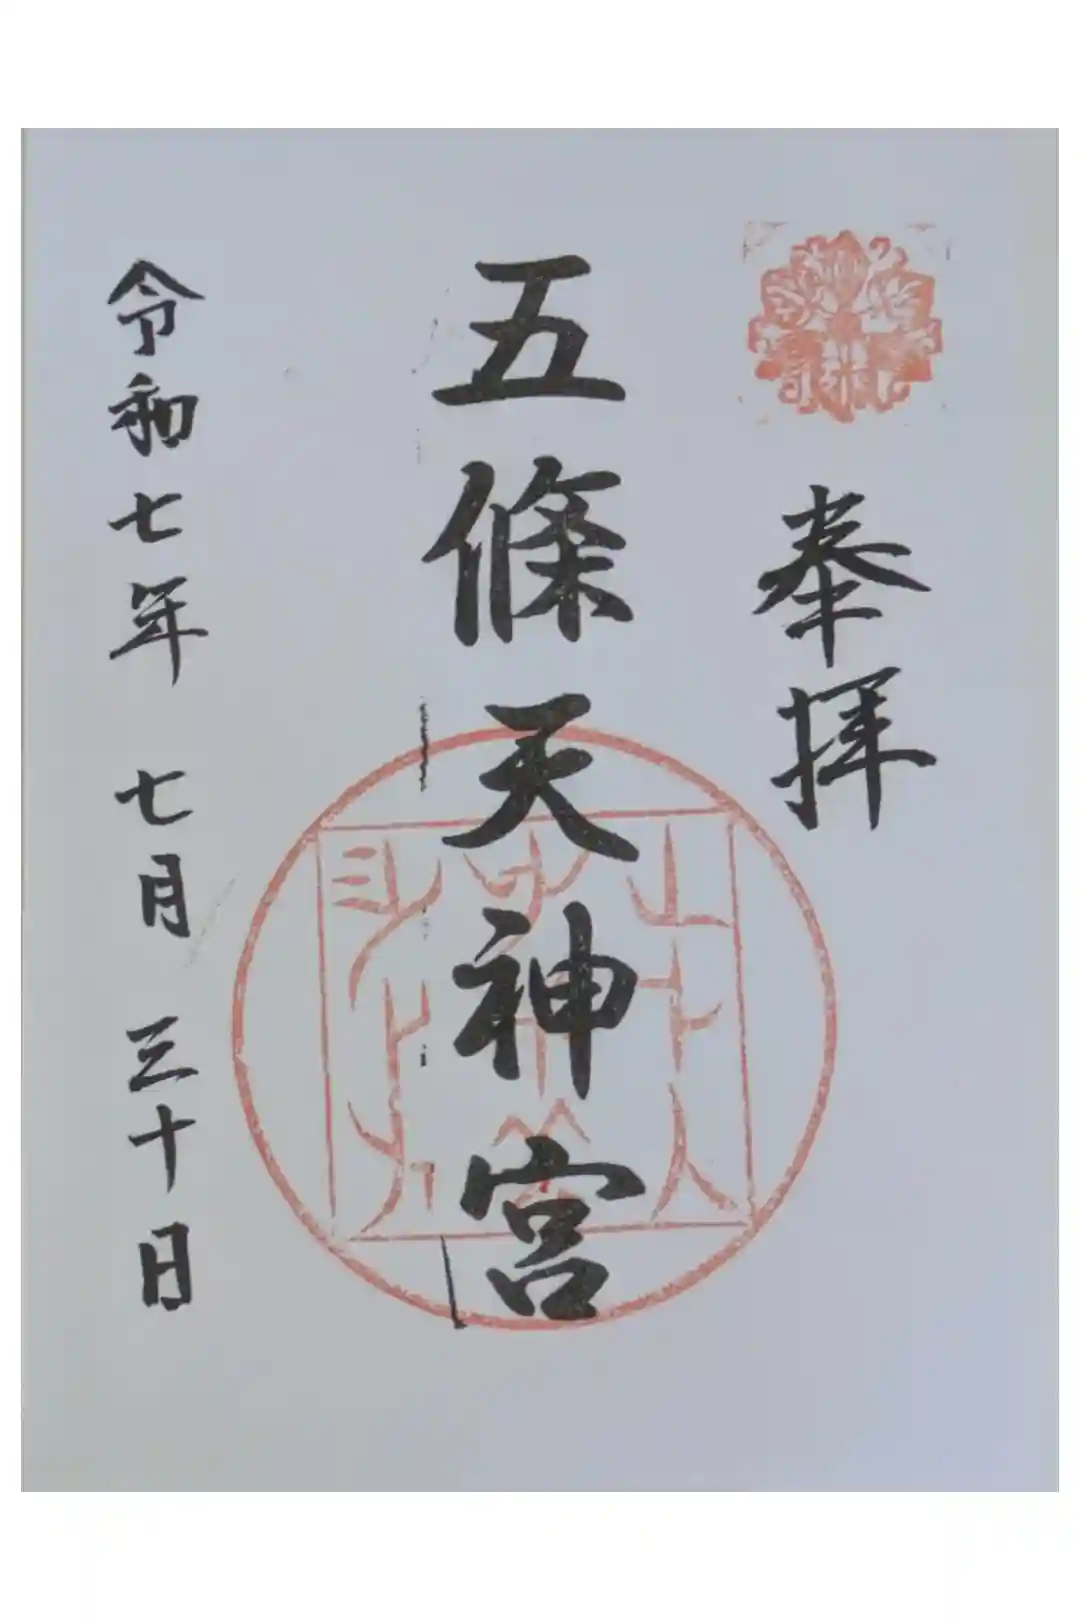 奉拝
五條天神宮
令和七年七月三十日